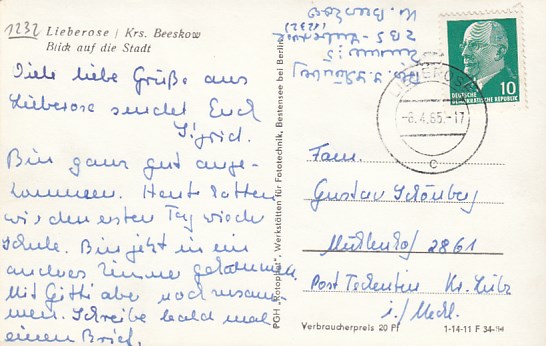 1232
Lieberose / Krs. Beeskow
Blick auf die Stadt
Viele liebe Grüße aus
Lieberose sendet Euch
Sigrid.
Bin ganz gut ange-
kommen. Heute hatten
wir den ersten Tag wieder
Schule. Bin jetzt in ein
anderes Zimmer gekommen.
Mit Gitti aber noch zusam-
men. Schreibe bald mal
einen Brief.
PGH „Rotophot", Werkstätten für Fototechnik, Bestensee bei Berlin
(1232)
Zimmer 5
LIEBEROSE
-6.4.65.-17
c
10
DEUTSCHE
DEMOKRATISCHE REPUBLIK
Fam.
Gustav Schönberg
2861
Post Techentin Kr. Lübz
i./Meckl.
Verbraucherpreis 20 Pf
1-14-11 F 34